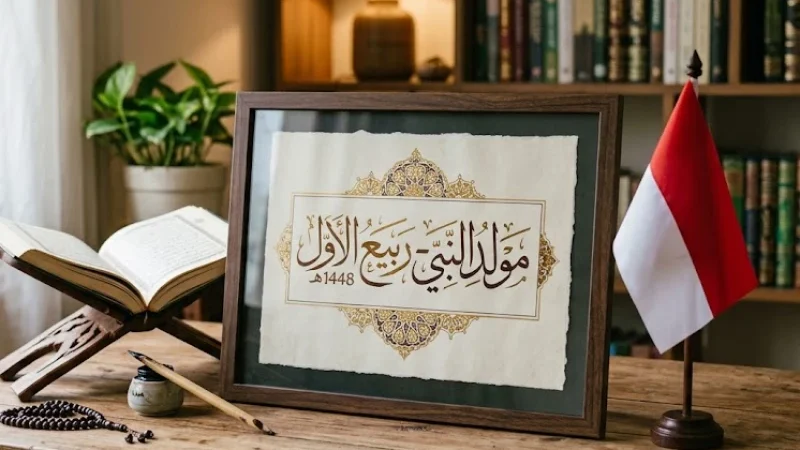 مَولِدُ النَّبِيّ - رَبِيعُ الأَوَّل
1448هـ